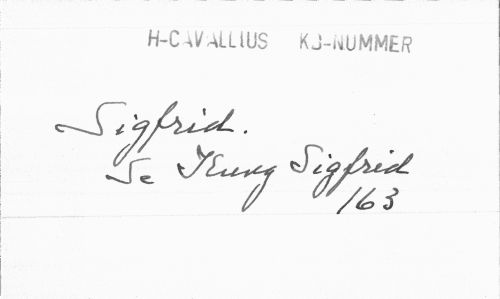 H-CAVALLIUS KB-NUMMER
Sigfrid.
Se Kung Sigfrid
163